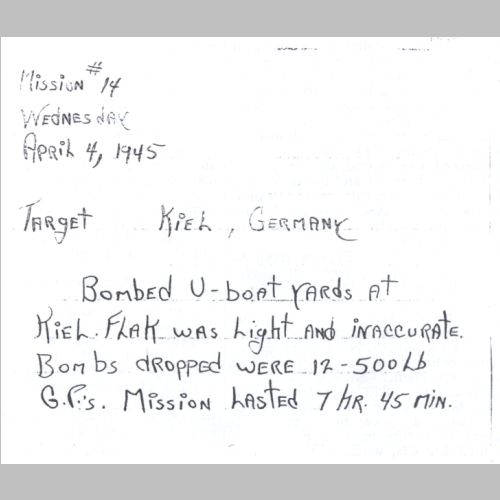 Mission #14
Wednesday
April 4, 1945
Target Kiel, Germany
Bombed U-boat yards at
Kiel. Flak was light and inaccurate.
Bombs dropped were 12-500 lb
G.P.'s. Mission lasted 7 hr. 45 min.